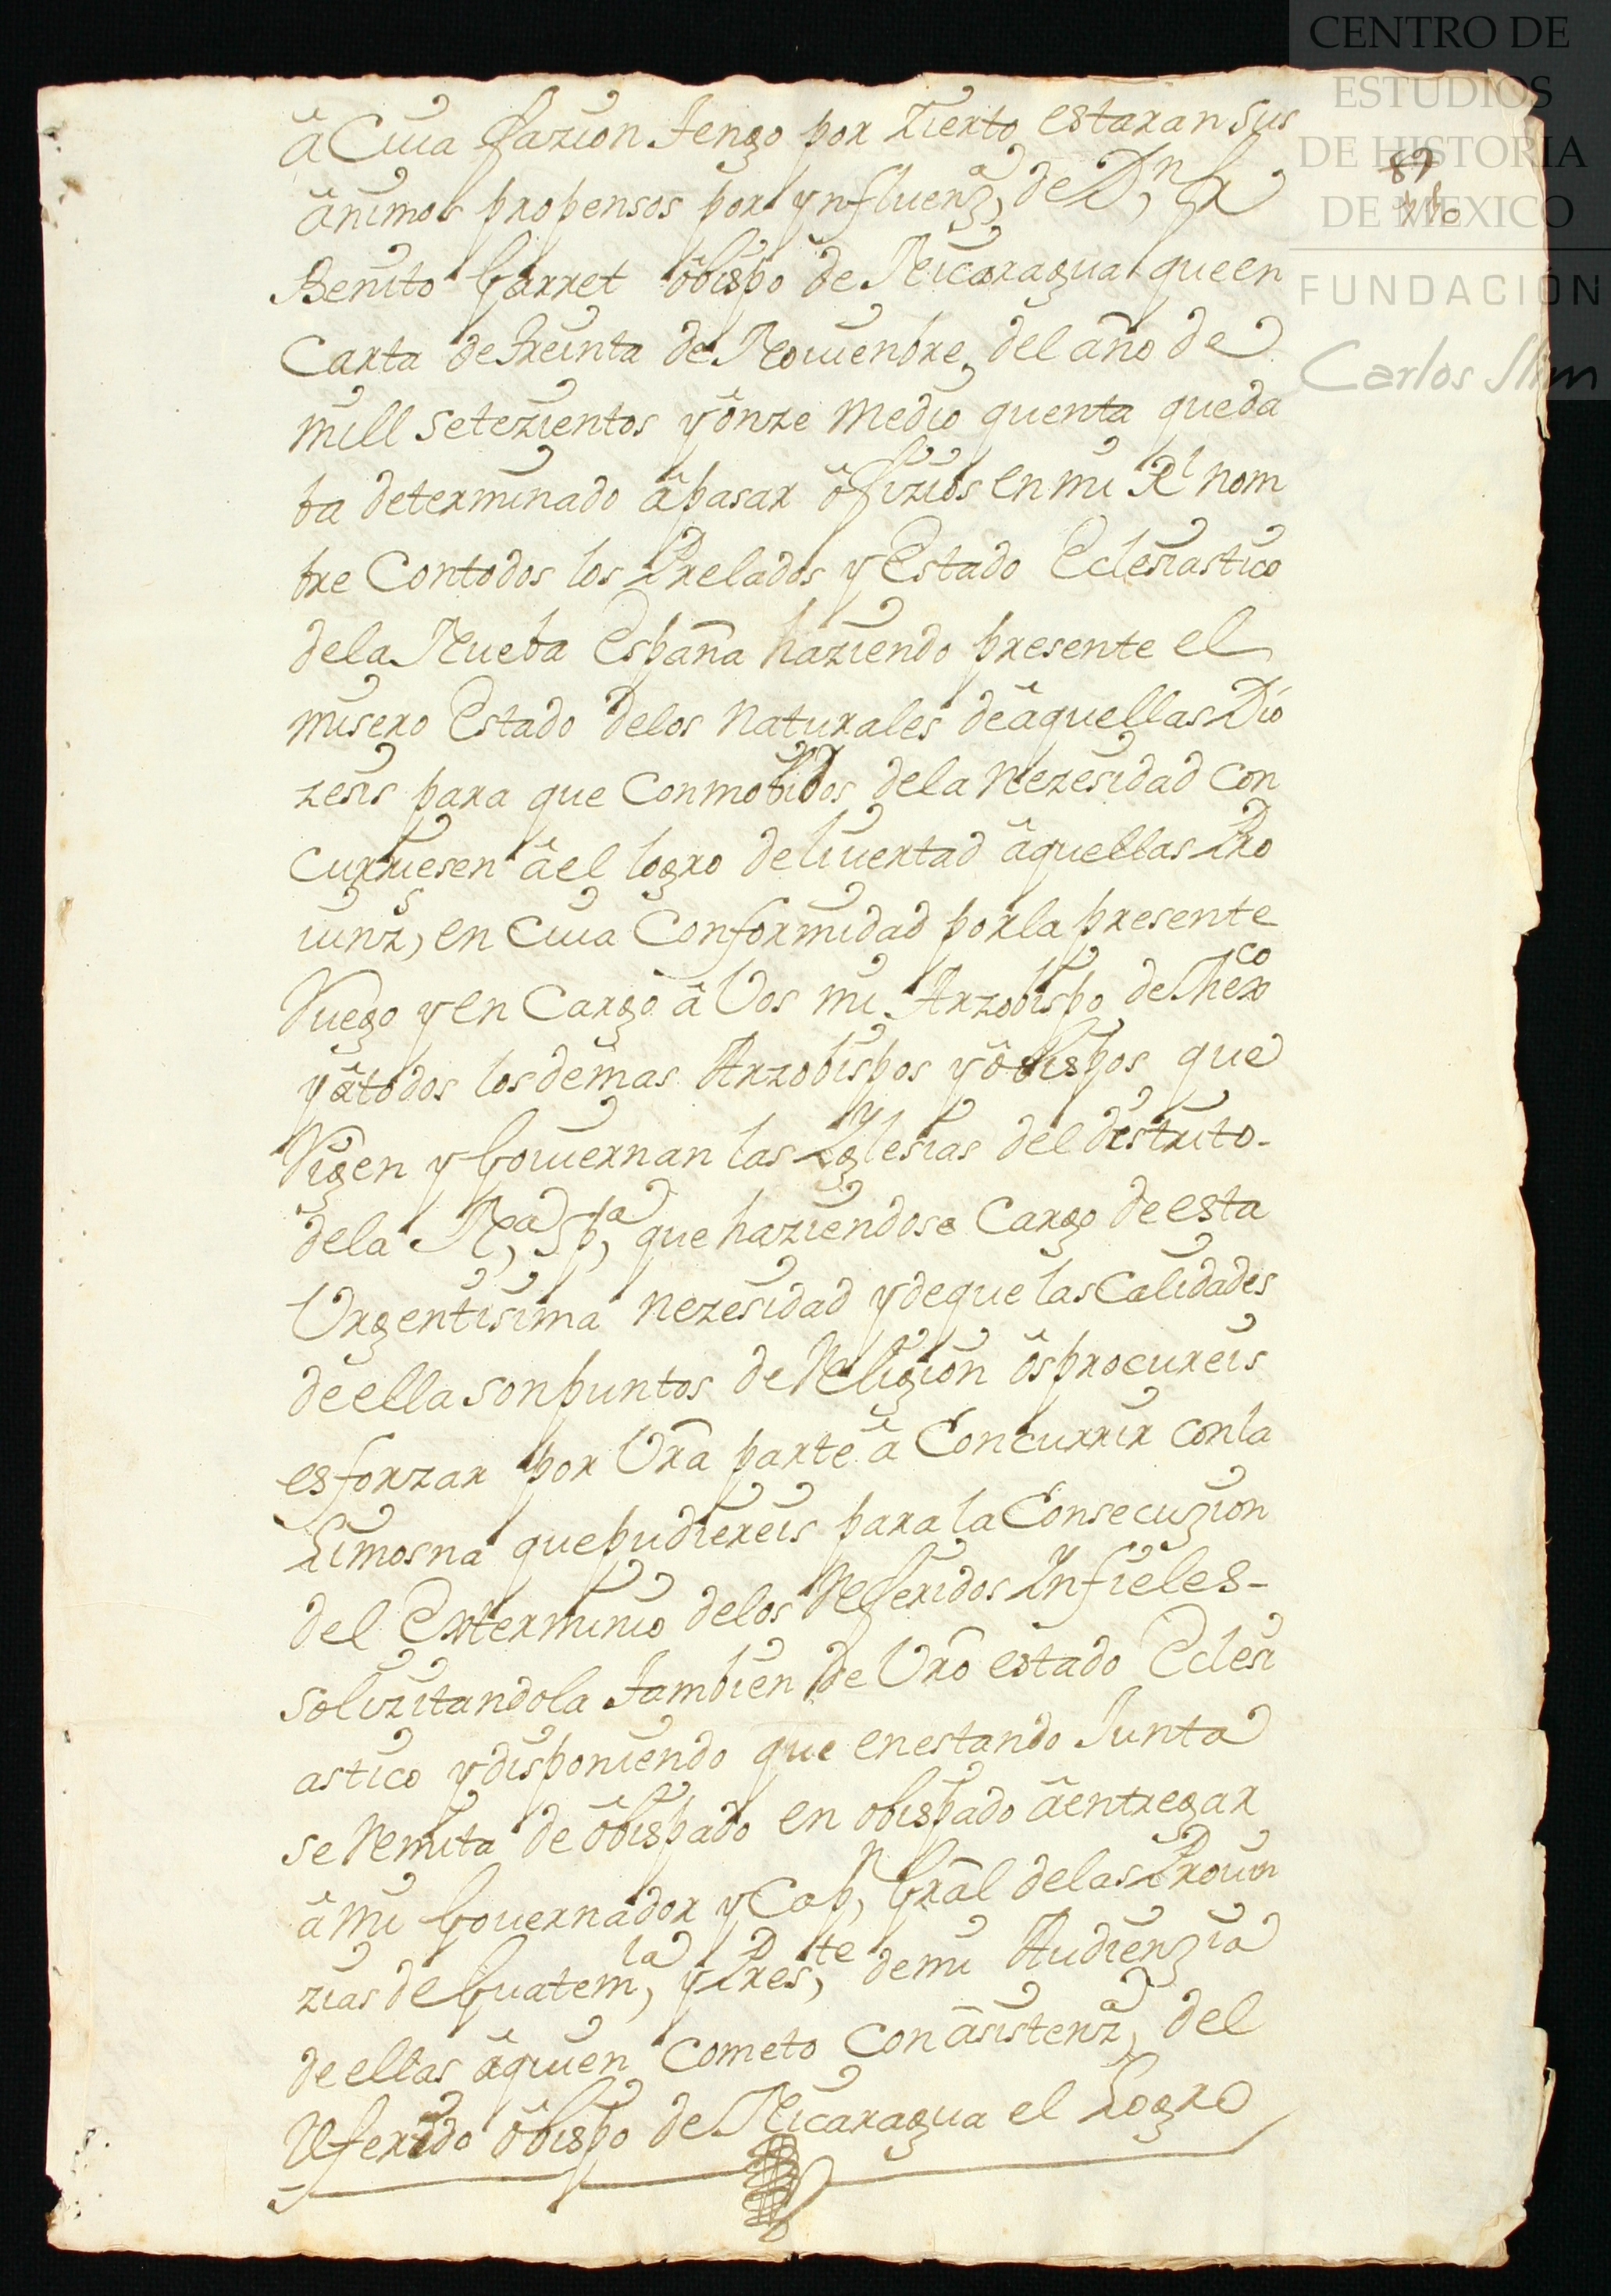 CENTRO DE
ESTUDIOS
DE HISTORIA
DE MEXICO
FUNDACIÓN
Carlos Slim
87
â Cuia fazion tengo por zierto estaran sus
ânimos propensos por ynfluenz,ª de D,n fr
Benito Garret ôbispo de Nicaragua que en
Carta de treinta de Nouienbre, del año de
mill setezientos y ônze medio quenta queda
ba determinado â pasar ôfizios en mi Rl nom
bre Contodos los Prelados y Estado Eclesiastico
dela Nueba España haziendo presente el
misero Estado delos naturales de âquellas Dió
zesis para que Conmobidos dela nezesidad Con
curriesen â el logro de liuertad âquellas Pro
uinzs, en Cuia Conformidad por la presente
Ruego y en Cargo â Vos mi Arzobispo de Mexco
y âtodos los demas Arzobispos y ôbispos que
Rigen y Gouiernan las Yglesias del distrito-
dela N,a Sp,a que haziendose Cargo de esta
Urgentisima nezesidad y de que las Calidades
de ella son puntos de Religion ôs procureis
esforzar por Vrã parte â Concurrir con la
Limosna que pudiereis para la Consecuzion
del Exterminio delos Referidos Infieles-
solizitandola tambien de Vrõ estado Eclesi
astico y disponiendo que en estando Junta
se Remita de ôbispado en obispado âentregar
â mi Gouernador y Cap,n Grãl delas Prouin
zias de Guatem,la y Pres,te de mi Audienzia
de ellas âquien Cometo Con âsistenz,a del
Referido ôbispo de Nicaragua el Logro